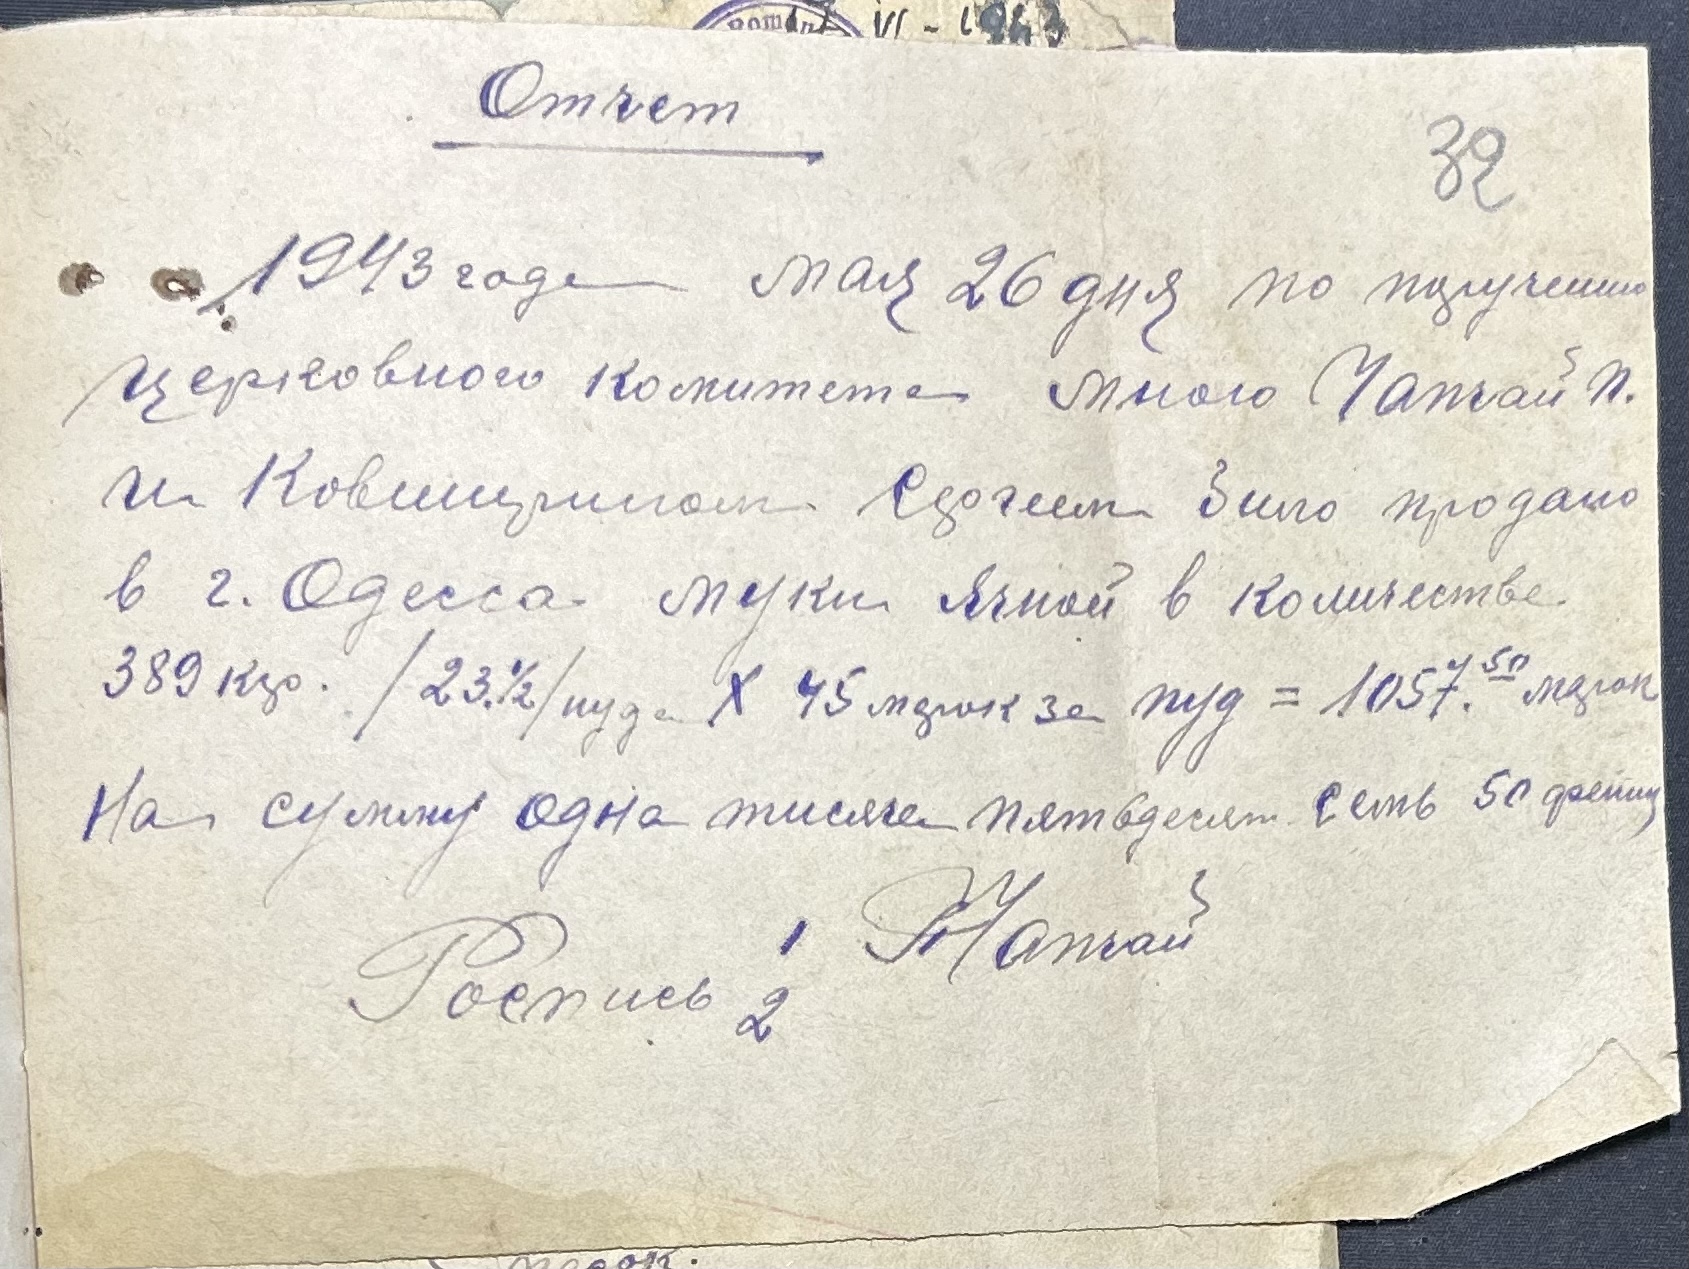 VI - 1943
Отчет
32
1943 года мая 26 дня по поручению
церковного комитета мною Чапчай П.
и Сергеем било продано
в г. Одесса муки ячной в количестве
389 кгр. /23.½/ пуда X 45 марок за пуд = 1057.50 марок
На сумму одна тисяча пятьдесят семь 50 фениц
1 Чапчай
Роспись 2